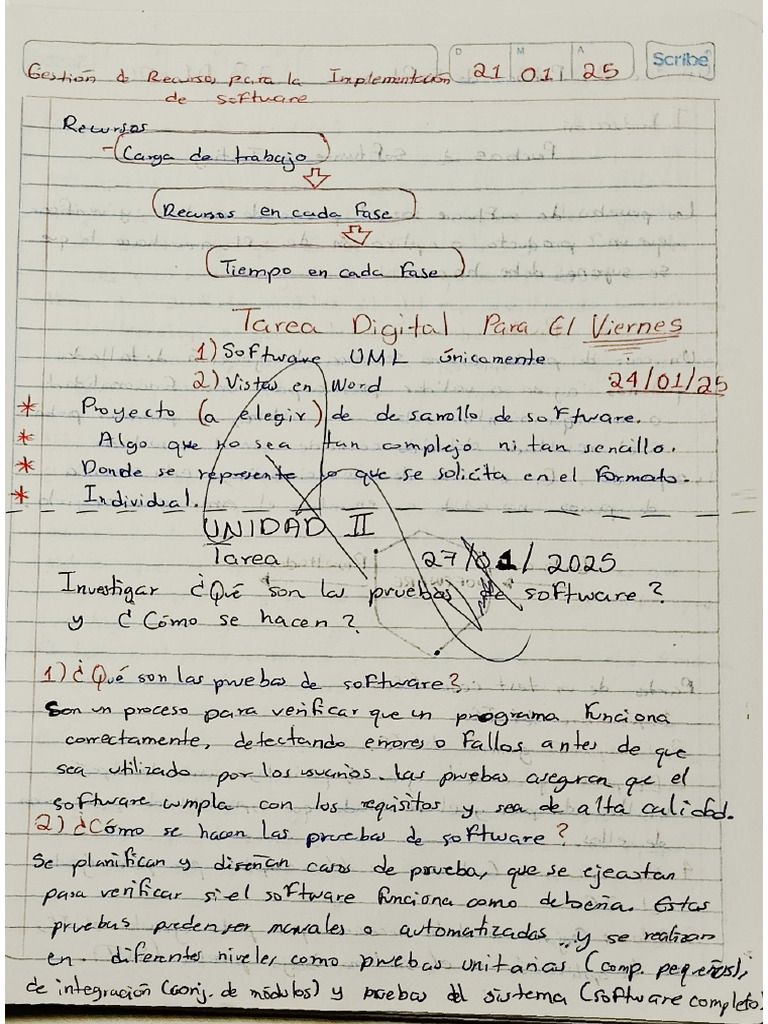 D M A
Scribe
Gestión de Recursos para la Implementación 21 01 25
de software
Recursos
- Carga de trabajo
Recursos en cada fase
Tiempo en cada fase
Tarea Digital Para El Viernes
1) Software UML únicamente
2) Vistas en Word 24/01/25
* Proyecto (a elegir) de de sarrollo de software.
* Algo que no sea tan complejo ni tan sencillo.
* Donde se represente lo que se solicita en el formato.
* Individual.
UNIDAD II
Tarea 27/01/2025
Investigar ¿Qué son las pruebas de software?
y ¿Cómo se hacen?
1) ¿Qué son las pruebas de software?
Son un proceso para verificar que un programa funciona
correctamente, detectando errores o fallos antes de que
sea utilizado por los usuarios. Las pruebas aseguran que el
software cumpla con los requisitos y sea de alta calidad.
2) ¿Cómo se hacen las pruebas de software?
Se planifican y diseñan casos de prueba, que se ejecutan
para verificar si el software funciona como debería. Estas
pruebas pueden ser manuales o automatizadas y se realizan
en diferentes niveles, como pruebas unitarias (comp. pequeños),
de integración (conj. de módulos) y pruebas del sistema (software completo)